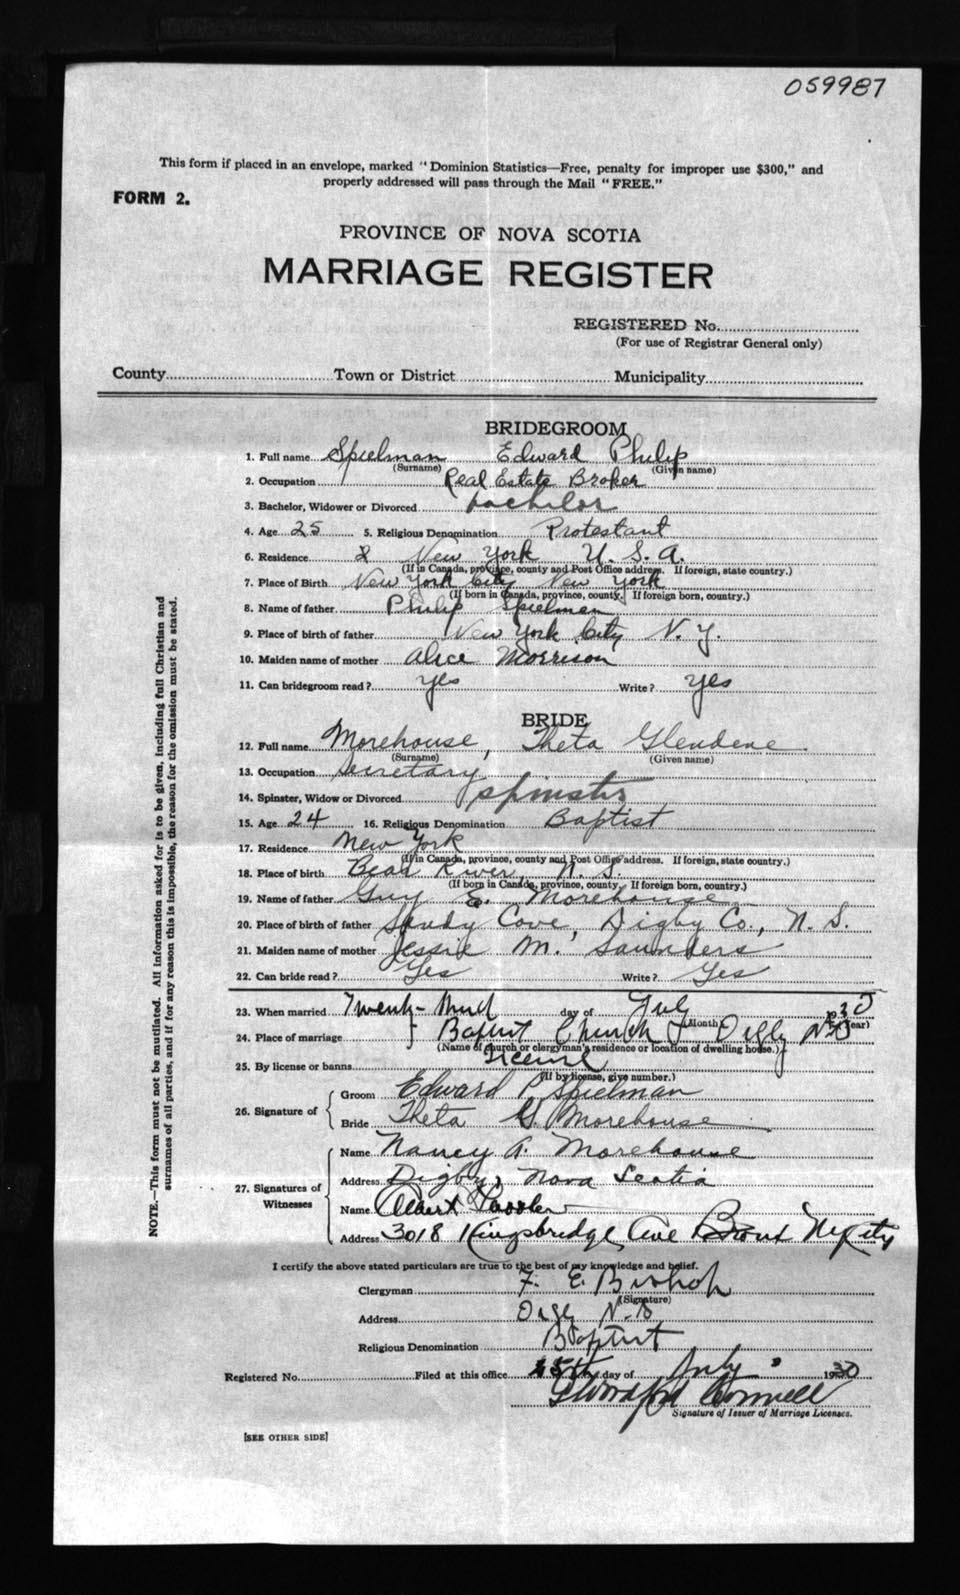 059987
This form if placed in an envelope, marked "Dominion Statistics—Free, penalty for improper use $300," and
properly addressed will pass through the Mail "FREE."
FORM 2.
PROVINCE OF NOVA SCOTIA
MARRIAGE REGISTER
REGISTERED No.
(For use of Registrar General only)
County Town or District Municipality
BRIDEGROOM
1. Full name Spielman Edward Philip
(Surname) (Given name)
2. Occupation Real Estate Broker
3. Bachelor, Widower or Divorced bachelor
4. Age 25 5. Religious Denomination Protestant
6. Residence New York U. S. A.
(If in Canada, province, county and Post Office address. If foreign, state country.)
7. Place of Birth New York City New York
(If born in Canada, province, county. If foreign born, country.)
8. Name of father Philip Spielman
9. Place of birth of father New York City N. Y.
10. Maiden name of mother Alice Morrison
11. Can bridegroom read? yes Write? yes
BRIDE
12. Full name Morehouse, Theta Glendene
(Surname) (Given name)
13. Occupation Secretary
14. Spinster, Widow or Divorced spinster
15. Age 24 16. Religious Denomination Baptist
17. Residence New York
(If in Canada, province, county and Post Office address. If foreign, state country.)
18. Place of birth Bear River, N. S.
(If born in Canada, province, county. If foreign born, country.)
19. Name of father Guy E. Morehouse
20. Place of birth of father Sandy Cove, Digby Co., N. S.
21. Maiden name of mother Jessie M. Saunders
22. Can bride read? Yes Write? Yes
23. When married Twenty-third day of July 1930
(Month) (Year)
24. Place of marriage Baptist Church Digby N.S
(Name of church or clergyman's residence or location of dwelling house.)
25. By license or banns License
(If by license, give number.)
26. Signature of Groom Edward P. Spielman
Bride Theta G. Morehouse
27. Signatures of Witnesses Name Nancy A. Morehouse
Address Digby, Nova Scotia
Name Albert
Address 3018 Kingsbridge Ave Bronx NYCity
I certify the above stated particulars are true to the best of my knowledge and belief.
Clergyman F. E. Bishop
(Signature)
Address Digby N.S
Religious Denomination Baptist
Registered No. Filed at this office 25th day of July 1930
Signature of Issuer of Marriage Licenses.
[SEE OTHER SIDE]
NOTE.—This form must not be mutilated. All information asked for is to be given, including full Christian and
surnames of all parties, and if for any reason this is impossible, the reason for the omission must be stated.